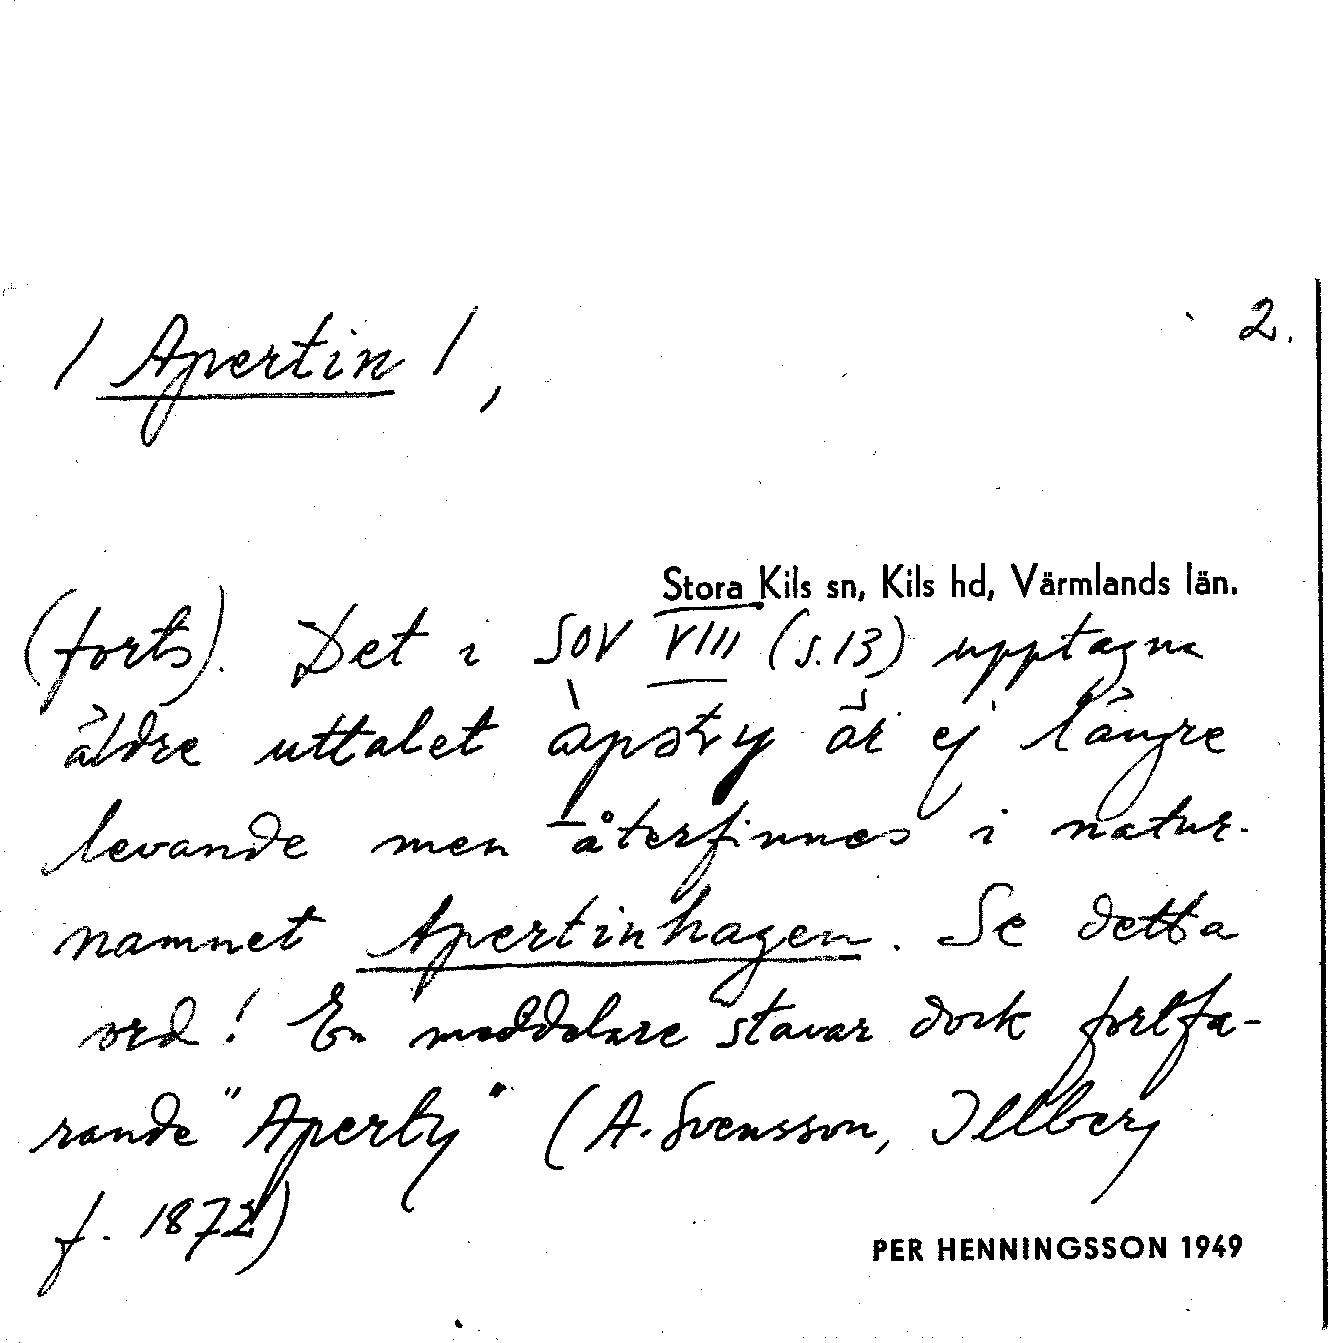 / Apertin / ,
2.
Stora Kils sn, Kils hd, Värmlands län.
(forts). Det i SOV VIII (s.13) upptagna
äldre uttalet är ej längre
levande men återfinnes i natur-
namnet Apertinhagen. Se detta
ord! En meddelare stavar dock fortfa-
rande "Aperty" (A. Svensson, Illberg
f. 1872)
PER HENNINGSSON 1949